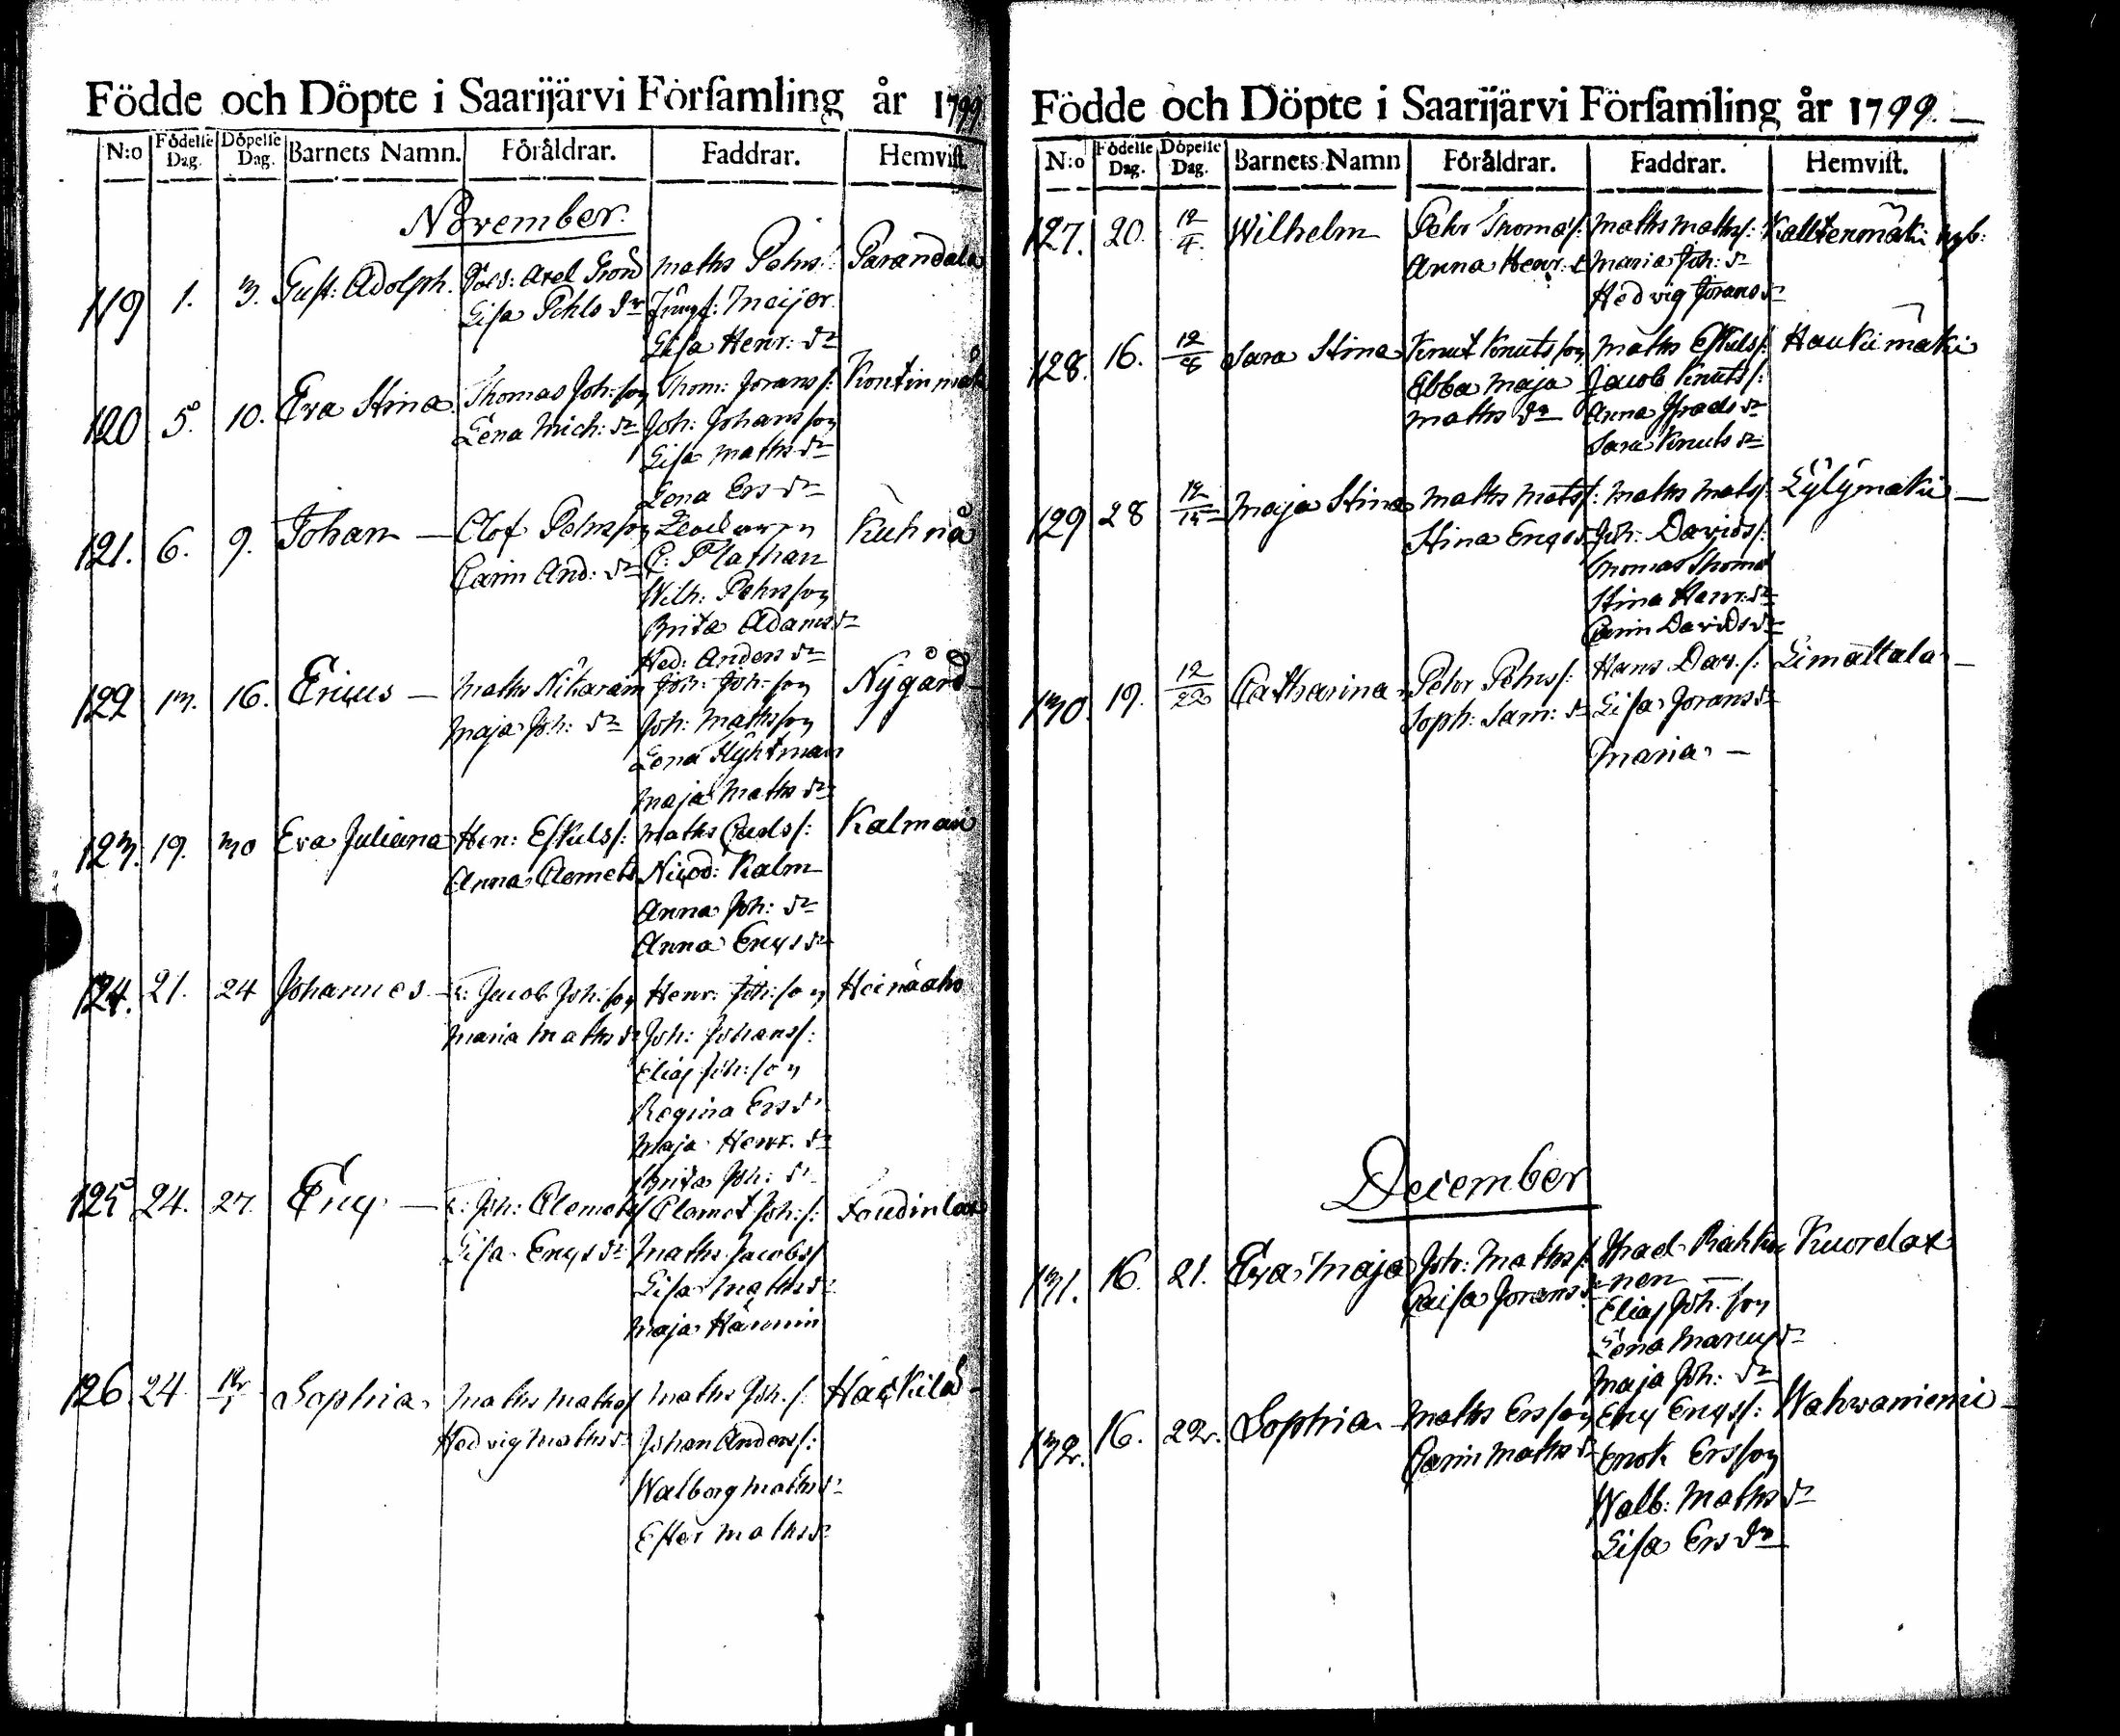 Födde och Döpte i Saarijärvi Församling år 1799
N:o Födelse Dag. Döpelse Dag. Barnets Namn. Föräldrar. Faddrar. Hemvist.
November.
119 1. 3. Gust: Adolph. Sold: Axel Maths Pehrs: Parandala
Lisa Pehls dr Jungf: Meijer
Lisa Henr: dr
120 5. 10. Eva Stina Thomas Joh:son Thom: Jorans: Kontinmäki
Lena Mich: dr Joh: Johansson
Lisa Maths dr
Lena Ers dr
121. 6. 9. Johan — Olof Pehrsson Kuhnå
Carin And: dr C: Plathan
Wilh: Pehrsson
Brita Adams dr
Hed: Anders dr
122 13. 16. Ericus — Maths Nikarain Joh: Joh:son Nygård
Maja Joh: dr Joh: Mathsson
Lena Hyhtman
Maja Maths dr
123. 19. 30 Eva Juliana Hen: Eskils: Maths Pauls: Kalmari
Anna Clemets Nicod: Kalm
Anna Joh: dr
Anna Erics dr
124. 21. 24 Johannes — Jacob Joh:son Henr: Joh:son Heinäaho
Maria Maths dr Joh: Johans:
Elias Joh:son
Regina Ers dr
Maja Henr. dr
Brita Joh: dr
125 24. 27. Eric — Joh: Clemets Clemet Joh:s:
Lisa Erics dr Maths Jacobs
Lisa Maths dr
Maja Hännin
126 24 12/1 Sophia Maths Maths Maths Joh:s: Häckilä
Hedvig Maths dr Johan Anders:
Walborg Maths dr
Ester Maths dr
Födde och Döpte i Saarijärvi Församling år 1799.
N:o Födelse Dag. Döpelse Dag. Barnets Namn Föräldrar. Faddrar. Hemvist.
127. 20. 12/4. Wilhelm Pehr Thomas: Maths Maths: Kalltenmäki nyb:
Anna Henr: dr Maria Joh: dr
Hedvig Jorans dr
128. 16. 12/8 Sara Stina Knut Knutsson Maths Eskils: Haukimäki
Ebba Maja Jacob Knuts:
Maths dr Anna Israels dr
Sara Knuts dr
129 28 12/15 Maja Stina Maths Mats: Maths Mats: Lylymäki —
Stina Erics dr Joh: Davids:
Thomas Thomas
Stina Henr: dr
Carin Davids dr
130. 19. 12/22 Catharina Petor Pehrs: Hans Dav: s: Limattala —
Soph: Sam: dr Lisa Jorans dr
Maria —
December
131. 16. 21. Eva Maja Joh: Maths: Israel Rahko Kuorelax
Caisa Jorans dr nen —
Elias Joh:son
Lena Marcus dr
Maja Joh: dr
132. 16. 22. Sophia — Maths Ersson Eric Erics: Wahwaniemi —
Carin Maths dr Enok Ersson
Walb: Maths dr
Lisa Ers dr